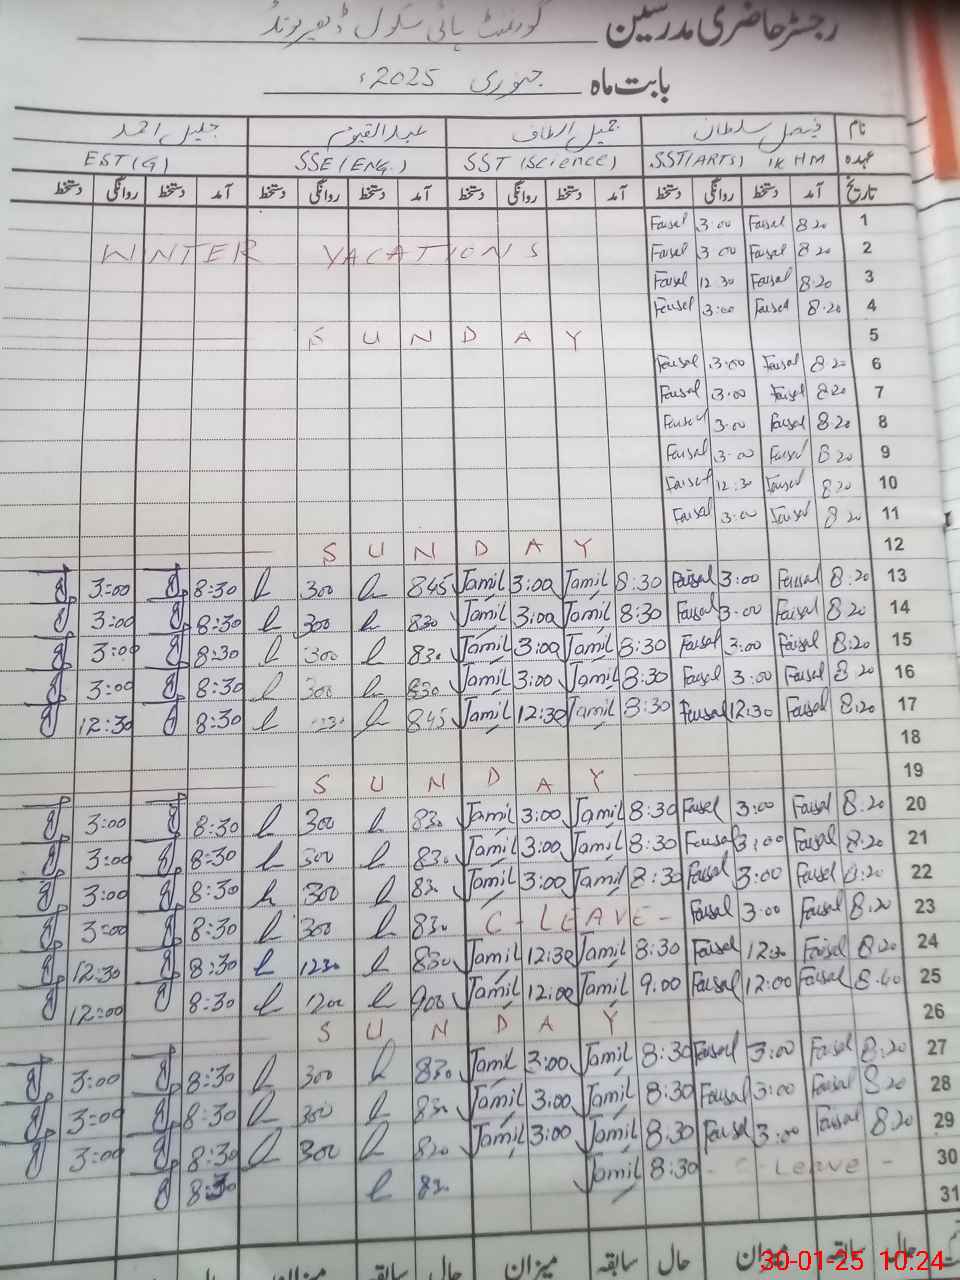 رجسٹر حاضری مدرسین گورنمنٹ ہائی سکول
بابت ماہ جنوری 2025ء
نام فیصل سلطان جمیل الطاف عبدالقیوم جلیل احمد
عہدہ SST(ARTS) IK HM SST(Science) SSE(ENG.) EST(G)
تاریخ آمد دستخط روانگی دستخط آمد دستخط روانگی دستخط آمد دستخط روانگی دستخط آمد دستخط روانگی دستخط
1 8.20 Faisal 3:00 Faisal
2 8.20 Faisal 3:00 Faisal
WINTER VACATIONS
3 8.20 Faisal 12.30 Faisal
4 8.20 Faisal 3:00 Faisal
5 SUNDAY
6 8.20 Faisal 3:00 Faisal
7 8.20 Faisal 3:00 Faisal
8 8.20 Faisal 3:00 Faisal
9 8.20 Faisal 3:00 Faisal
10 8.20 Faisal 12:30 Faisal
11 8.20 Faisal 3:00 Faisal
12 SUNDAY
13 8:20 Faisal 3:00 Faisal 8:30 Jamil 3:00 Jamil 845 300 8:30 3:00
14 8:20 Faisal 3:00 Faisal 8:30 Jamil 3:00 Jamil 830 300 8:30 3:00
15 8:20 Faisal 3:00 Faisal 8:30 Jamil 3:00 Jamil 830 300 8:30 3:00
16 8:20 Faisal 3:00 Faisal 8:30 Jamil 3:00 Jamil 830 300 8:30 3:00
17 8:20 Faisal 12:30 Faisal 8:30 Jamil 12:30 Jamil 845 8:30 12:30
18
19 SUNDAY
20 8:20 Faisal 3:00 Faisal 8:30 Jamil 3:00 Jamil 830 300 8:30 3:00
21 8:20 Faisal 3:00 Faisal 8:30 Jamil 3:00 Jamil 830 300 8:30 3:00
22 8:20 Faisal 3:00 Faisal 8:30 Jamil 3:00 Jamil 830 300 8:30 3:00
23 8:20 Faisal 3:00 Faisal C-LEAVE- 830 300 8:30 3:00
24 8:20 Faisal 12:30 Faisal 8:30 Jamil 12:30 Jamil 830 1230 8:30 12:30
25 8:40 Faisal 12:00 Faisal 9:00 Jamil 12:00 Jamil 900 1200 8:30 12:00
26 SUNDAY
27 8:20 Faisal 3:00 Faisal 8:30 Jamil 3:00 Jamil 830 300 8:30 3:00
28 8:20 Faisal 3:00 Faisal 8:30 Jamil 3:00 Jamil 830 300 8:30 3:00
29 8:20 Faisal 3:00 Faisal 8:30 Jamil 3:00 Jamil 820 300 8:30 3:00
30 - C-Leave - 8:30 Jamil 830 8:30
31
حال سابقہ میزان حال سابقہ میزان حال سابقہ میزان حال
30-01-25 10:24